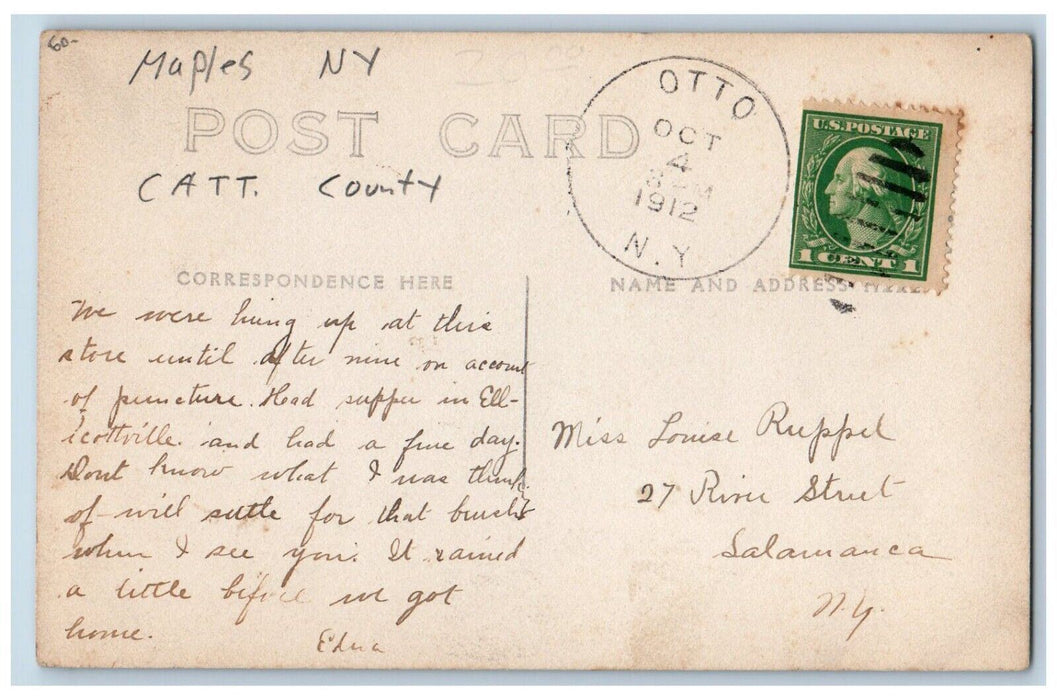 60-
Maples NY
POST CARD
CATT. County
OTTO
OCT
4
1912
N.Y.
U.S. POSTAGE
1 CENT 1
CORRESPONDENCE HERE
NAME AND ADDRESS HERE
We were hung up at this
store until after nine on account
of puncture. Had supper in Ell-
icottville and had a fine day.
Dont know what I was think
of - will settle for that brush
when I see you. It rained
a little before we got
home.
Edna
Miss Louise Ruppel
27 River Street
Salamanca
N.Y.